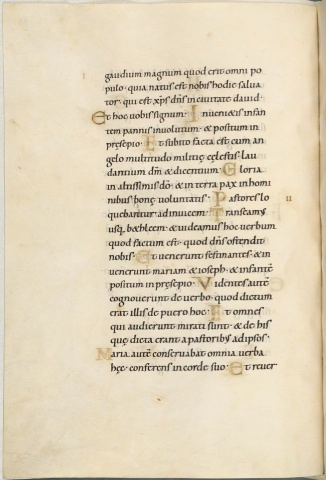 gaudium magnum quod erit omni po
pulo · quia natus est nobis hodie salua
tor · qui est xp̄s dn̄s in ciuitate dauid ·
Et hoc uobis signum · Inuenietis infan
tem pannis inuolutum · & positum in
pręsepio · Et subito facta est cum an
gelo multitudo militię cęlestis · lau
dantium dm̄ & dicentium · Gloria
in altissimis dō · & in terra pax in homi
nibus bonę uoluntatis · Pastores lo
quebantur adinuicem · Transeamus
usq; bethleem · & uideamus hoc uerbum
quod factum est · quod dn̄s ostendit
nobis · Et uenerunt festinantes · & in
uenerunt mariam & ioseph · & infantē
positum in pręsepio · Videntes autē
cognouerunt de uerbo · quod dictum
erat illis de puero hoc · Et omnes
qui audierunt mirati sunt · & de his
quę dicta erant a pastoribus ad ipsos ·
Maria autē conseruabat omnia uerba
hęc · conferens in corde suo · Et reuer
II